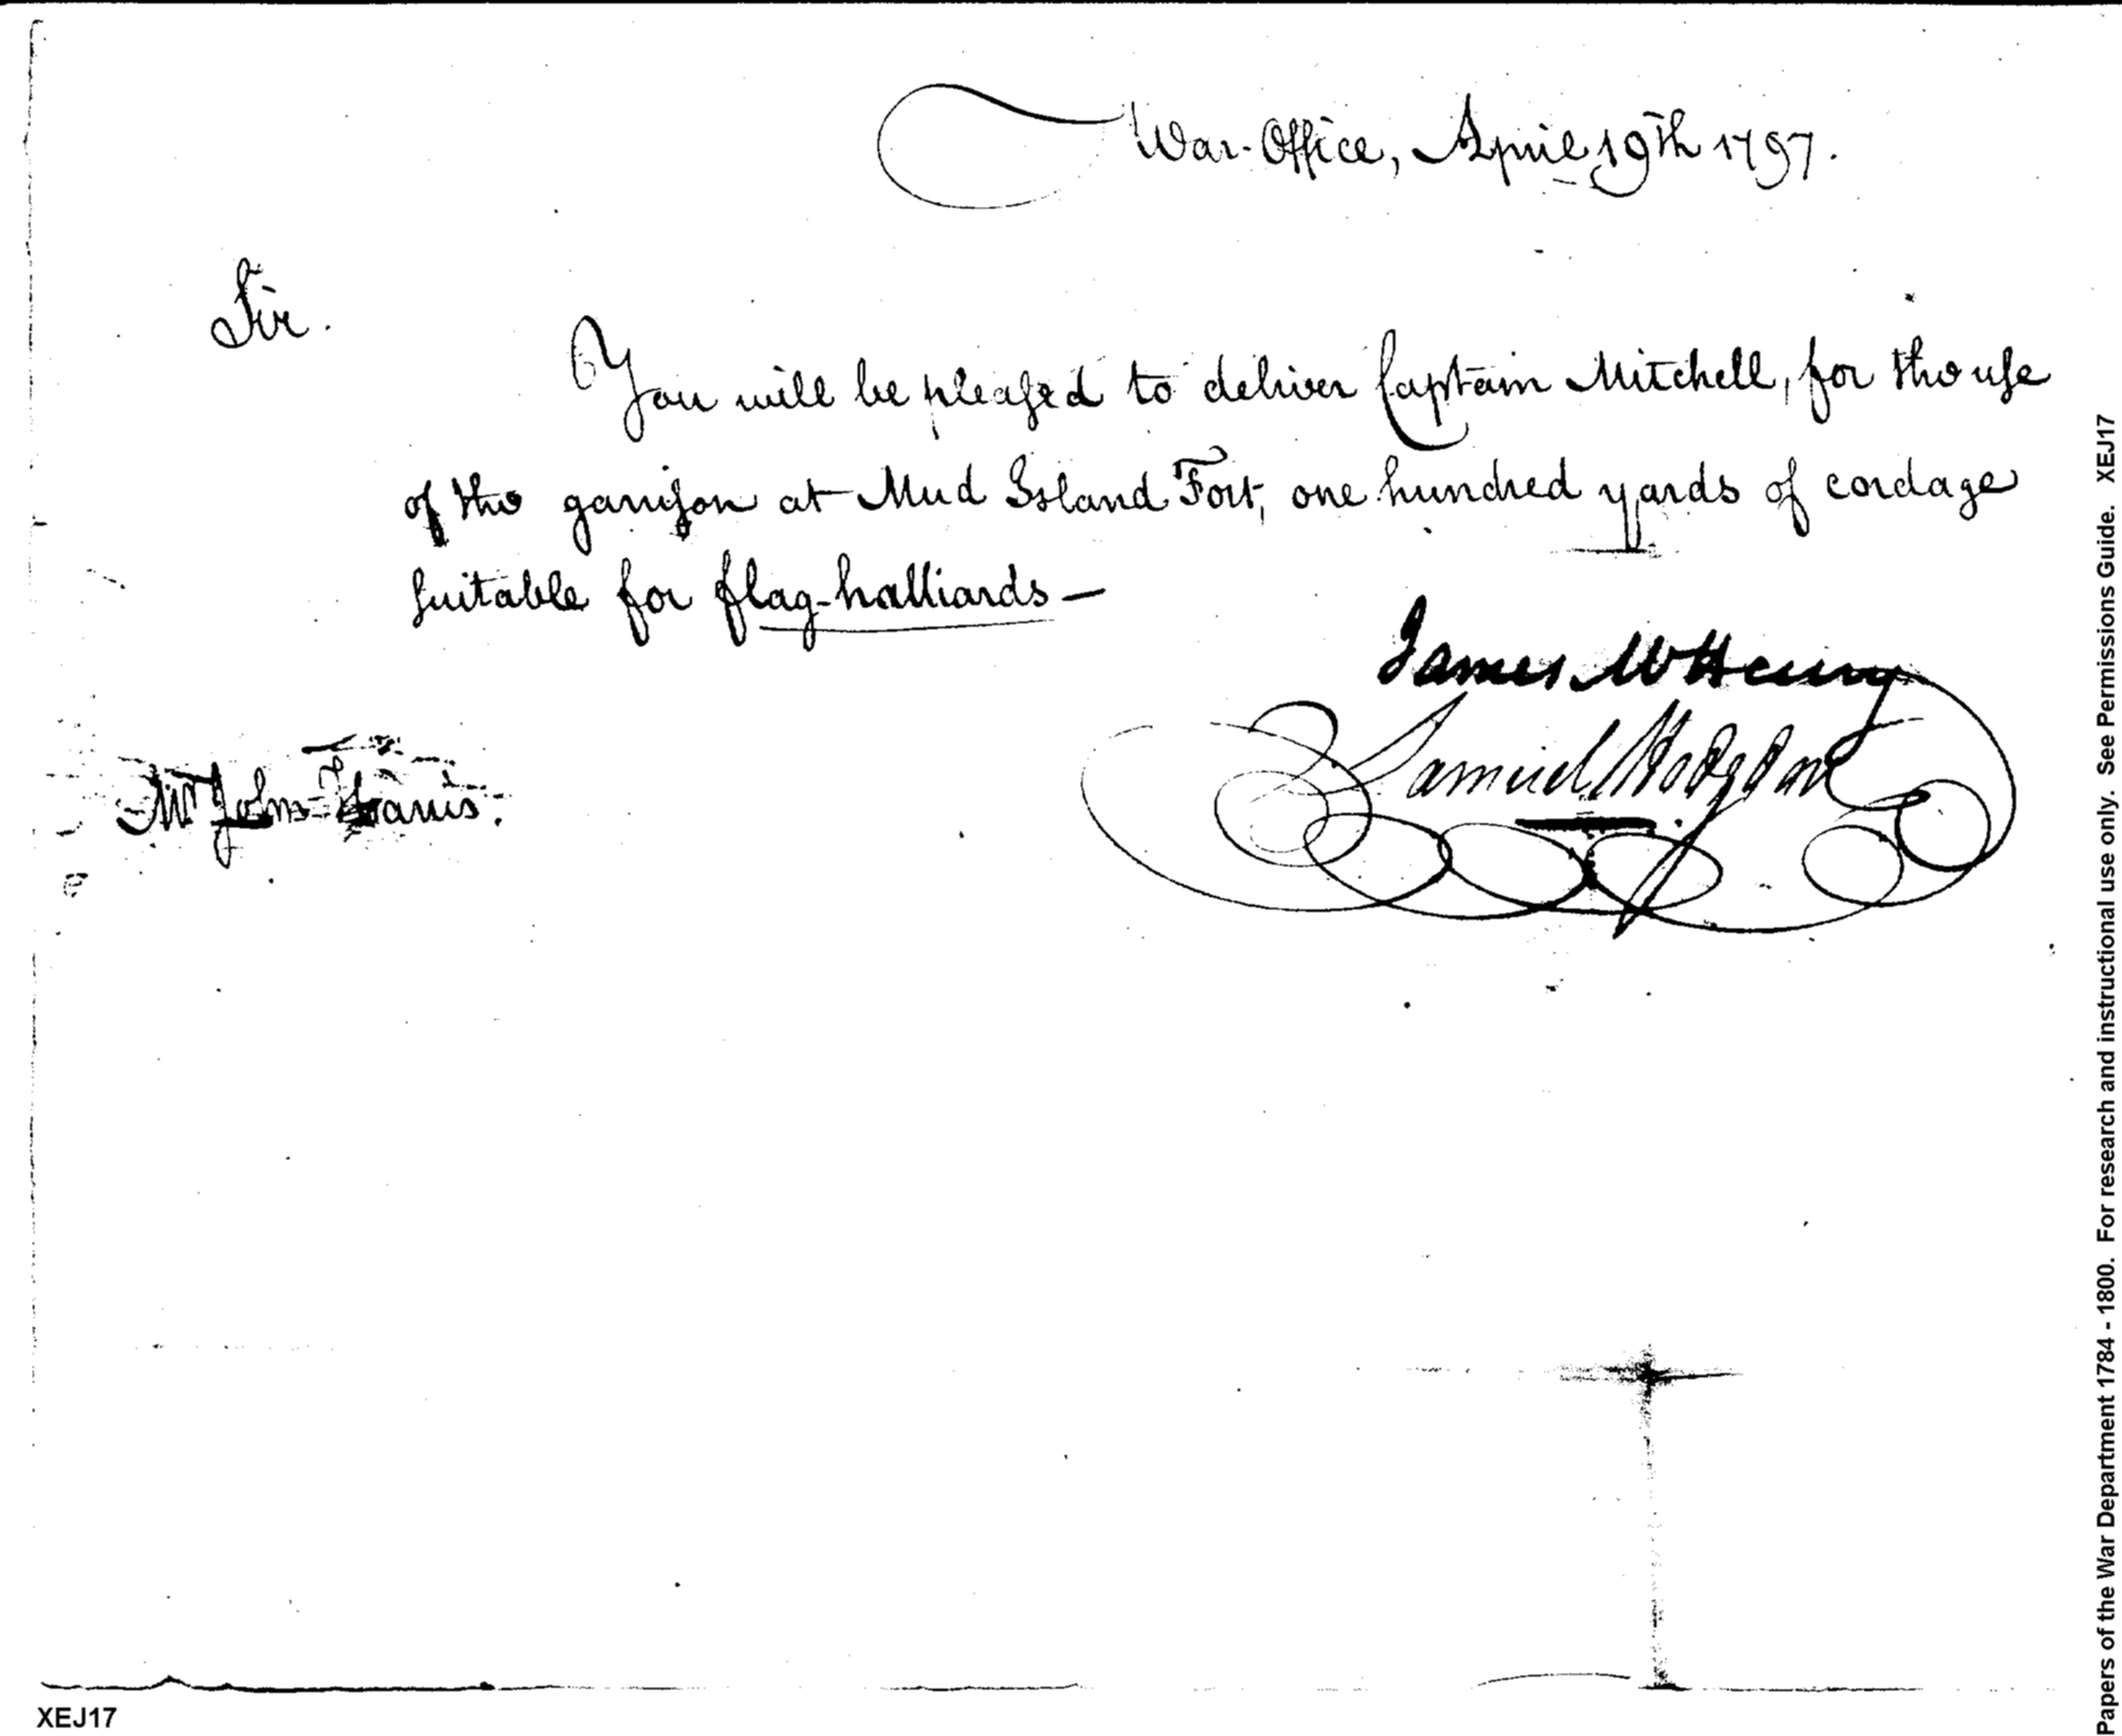 War-Office, April 19th 1797.
Sir.
You will be pleased to deliver Captain Mitchell, for the use
of the garrison at Mud Island Fort, one hundred yards of cordage
suitable for flag-halliards —
James McHenry
Samuel Hodgdon
Mr John Harris.
XEJ17
Papers of the War Department 1784 - 1800. For research and instructional use only. See Permissions Guide. XEJ17